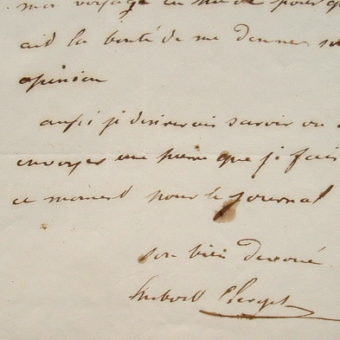 mon voyage en
ait la bonté de me donner
opinion
aussi je désirerais savoir ou
envoyer une pierre que je fais
ce moment pour le journal
son bien dévoué
hubert Clerget